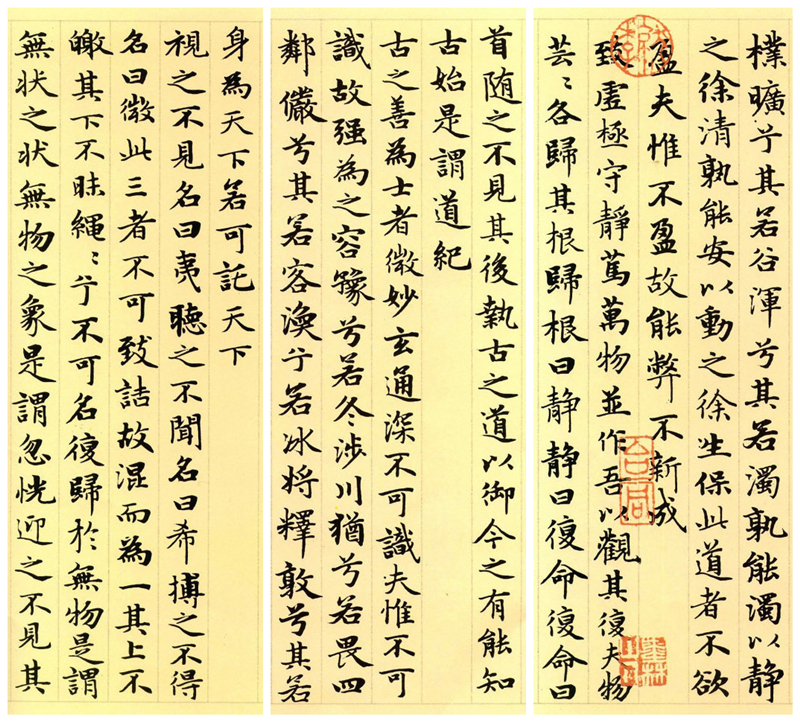 身為天下若可託天下
視之不見名曰夷聽之不聞名曰希搏之不得
名曰微此三者不可致詰故混而為一其上不
皦其下不昧繩〻兮不可名復歸於無物是謂
無狀之狀無物之象是謂忽恍迎之不見其
首随之不見其後執古之道以御今之有能知
古始是謂道紀
古之善為士者微妙玄通深不可識夫惟不可
識故强為之容豫兮若冬涉川猶兮若畏四
鄰儼兮其若客渙兮若冰将釋敦兮其若
樸曠兮其若谷渾兮其若濁孰能濁以静
之徐清孰能安以動之徐生保此道者不欲
盈夫惟不盈故能弊不新成
致虛極守靜篤萬物並作吾以觀其復夫物
芸〻各歸其根歸根曰静静曰復命復命曰
合同